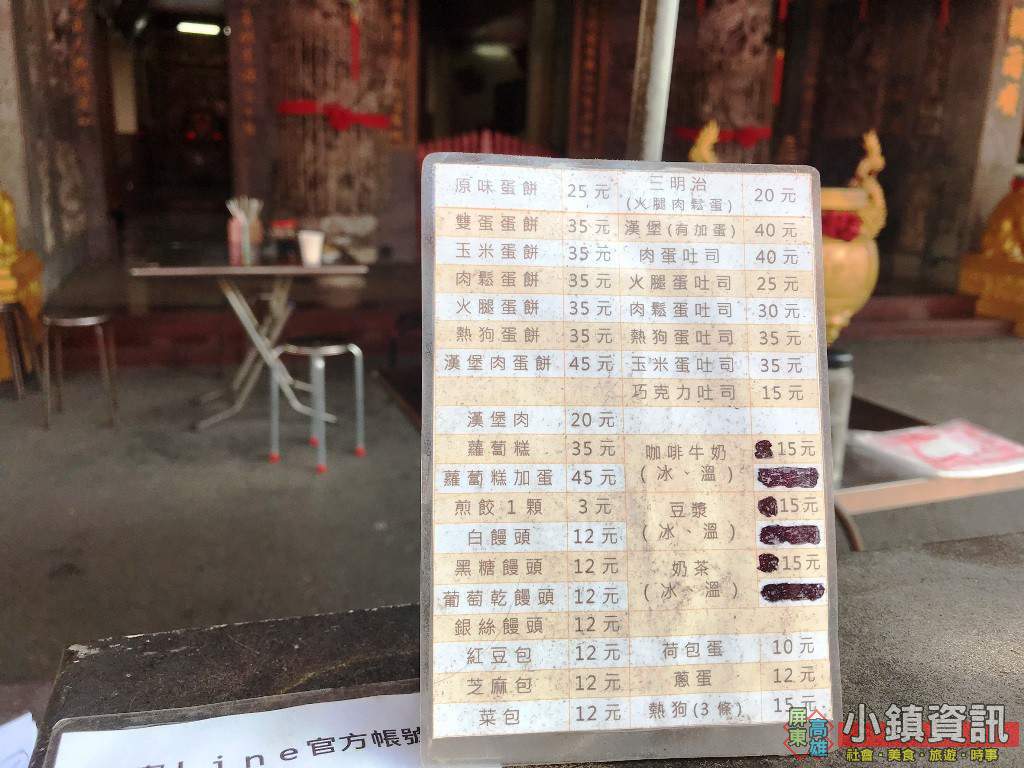 原味蛋餅 25元 三明治 20元
(火腿肉鬆蛋)
雙蛋蛋餅 35元 漢堡(有加蛋) 40元
玉米蛋餅 35元 肉蛋吐司 40元
肉鬆蛋餅 35元 火腿蛋吐司 25元
火腿蛋餅 35元 肉鬆蛋吐司 30元
熱狗蛋餅 35元 熱狗蛋吐司 35元
漢堡肉蛋餅 45元 玉米蛋吐司 35元
巧克力吐司 15元
漢堡肉 20元
蘿蔔糕 35元 咖啡牛奶 15元
蘿蔔糕加蛋 45元 (冰、溫)
煎餃1顆 3元 豆漿 15元
白饅頭 12元 (冰、溫)
黑糖饅頭 12元 奶茶 15元
葡萄乾饅頭 12元 (冰、溫)
銀絲饅頭 12元
紅豆包 12元 荷包蛋 10元
芝麻包 12元 蔥蛋 12元
菜包 12元 熱狗(3條) 15元
Line官方帳號
屏東 高雄 小鎮資訊
社會·美食·旅遊·時事